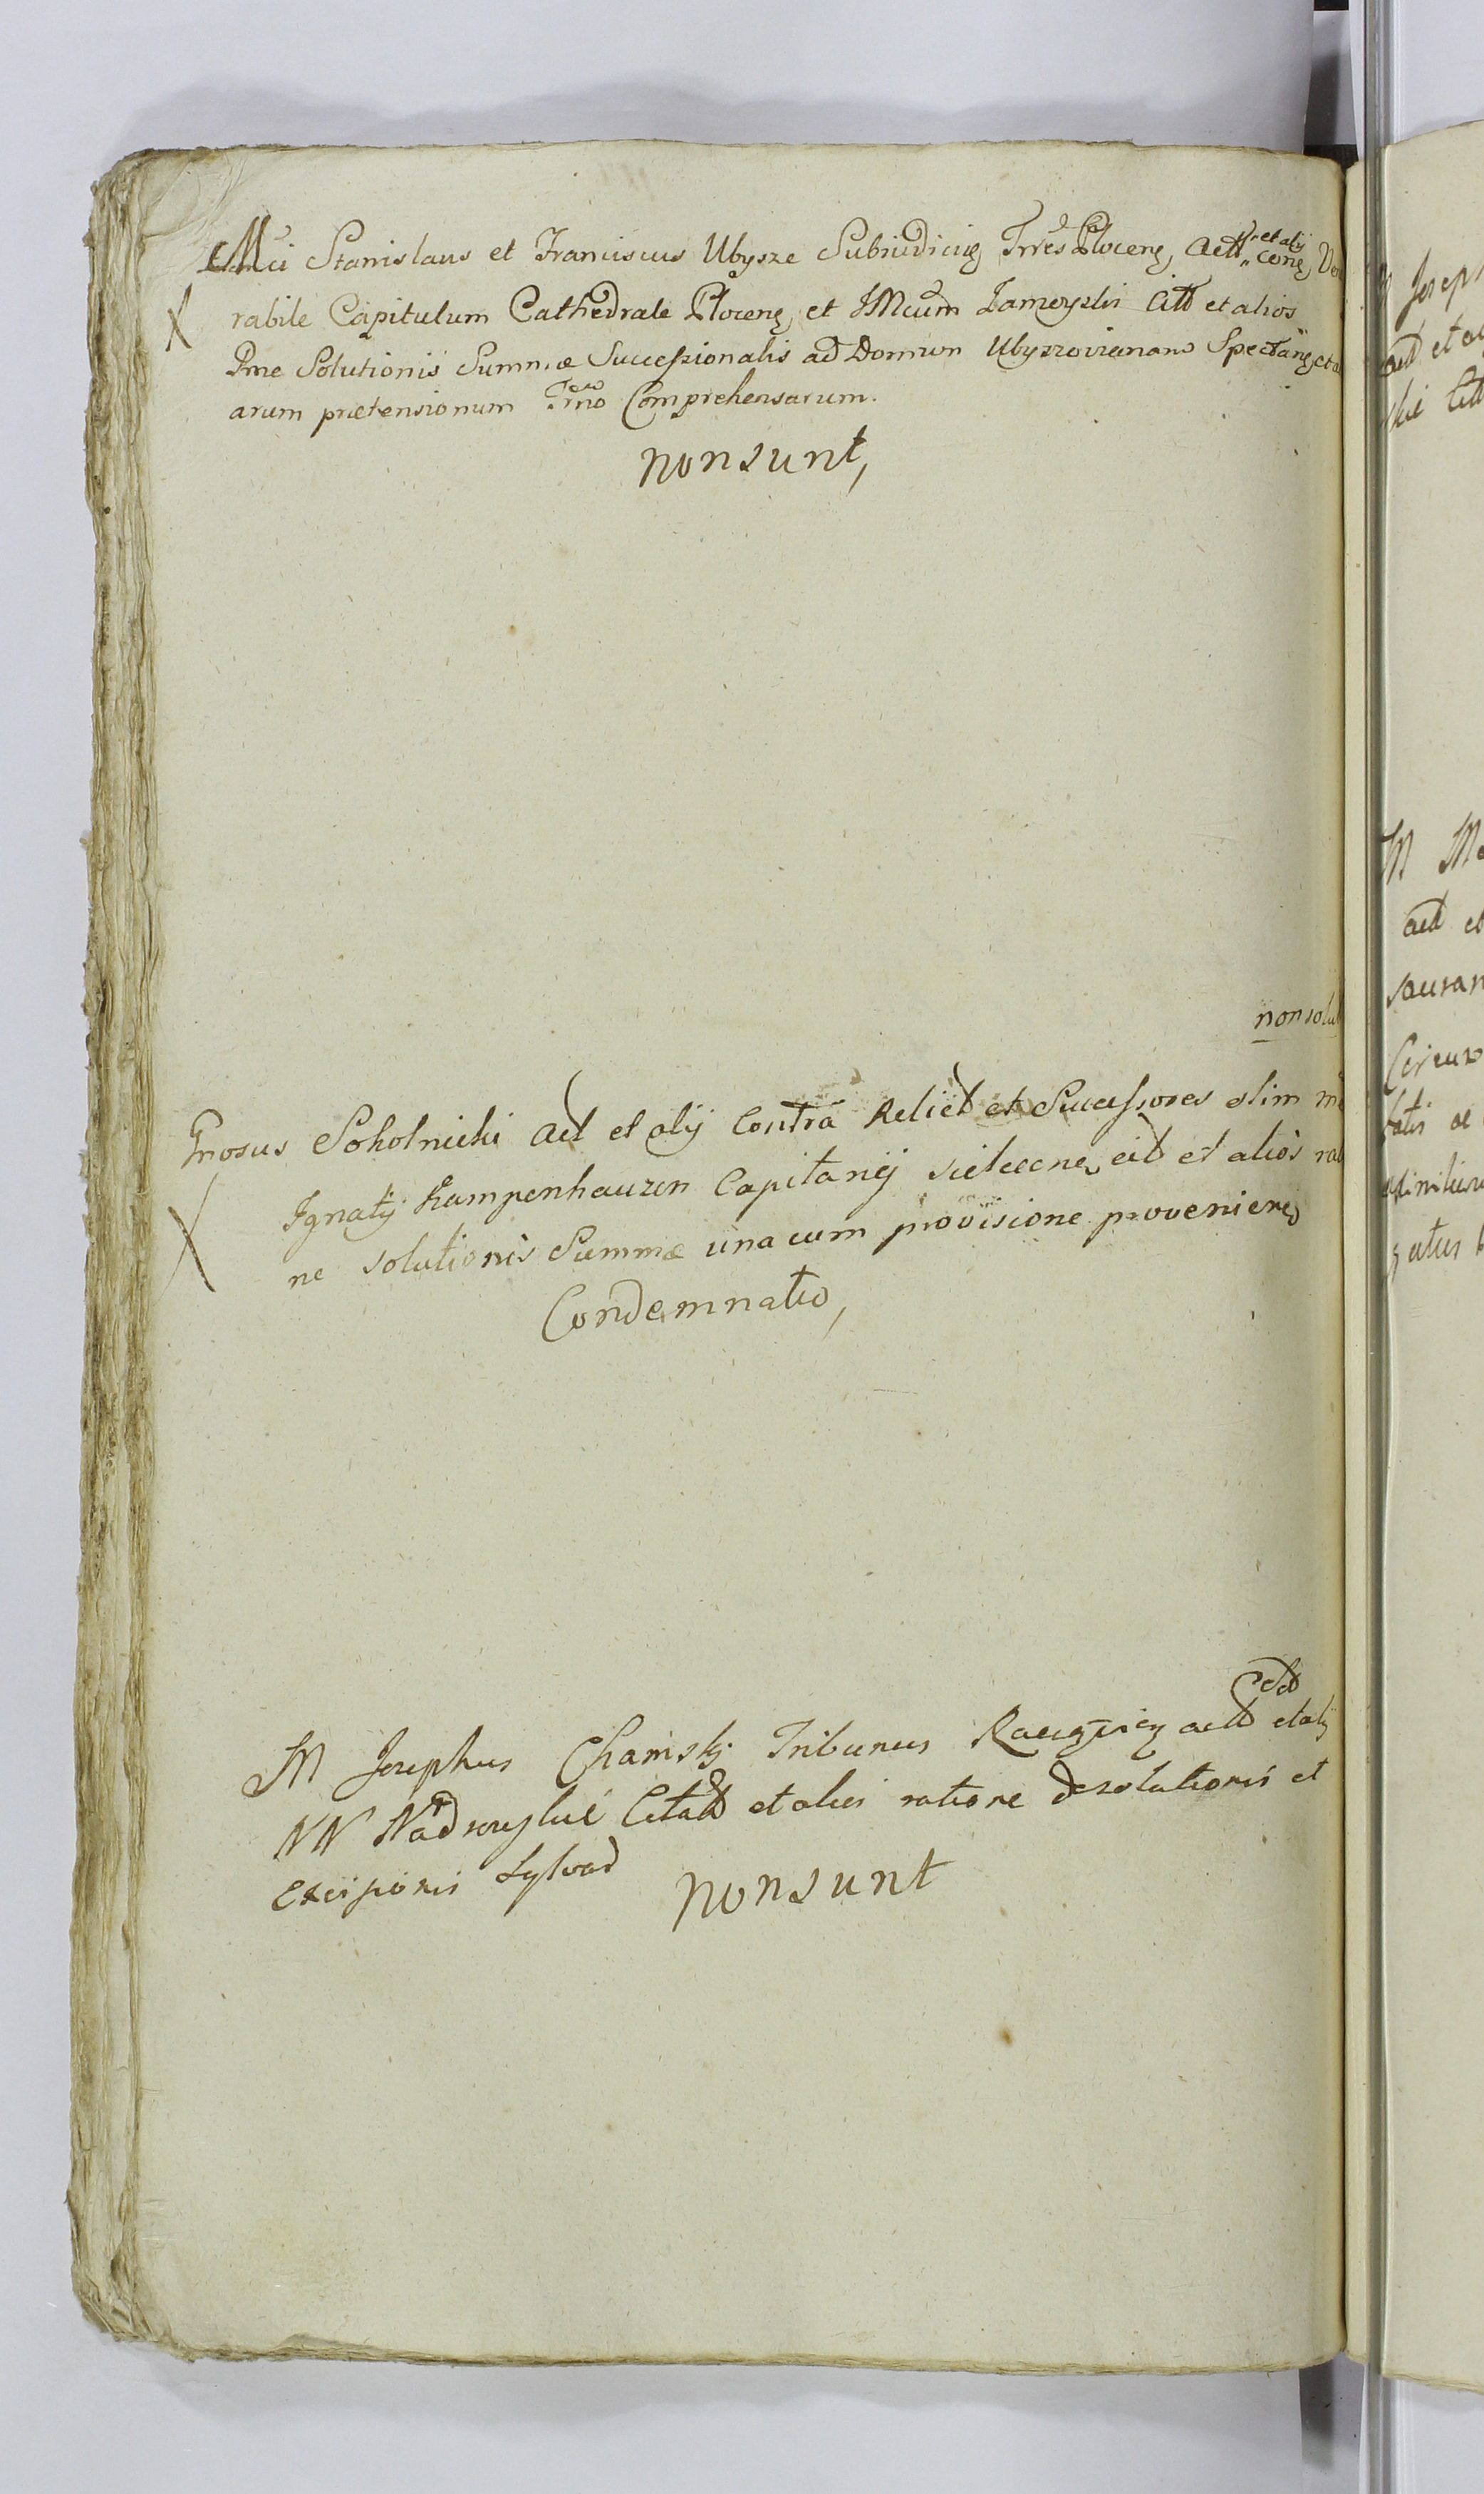 Mci Stanislaus et Franciscus Ubysze Subiudicig Trres Plocens, Actt et alij Cone, Ve
rabile Capitulum Cathedrale Plocens, et IMcum Zamoyski Citt et alios
Rne Solutionis Summæ Successionalis ad Domum Ubyszovianam Spectang, et a
arum prætensionum Trmo Comprehensarum.
non sunt,
non solu
Gnosus Sokolnicki Act et alij Contra Relict et Successores olim M
Ignatij Kampenhauzen Capitanei cit et alios rao
ne solutionis Summæ una cum provisione provenien
Condemnatio,
M Josephus Chamski Tribunus actt et alij
NN Citatt et alios ratione desolutionis et
Excisionis Sylvar
non sunt
Joseph
act et a
ski Citt
M M
act et